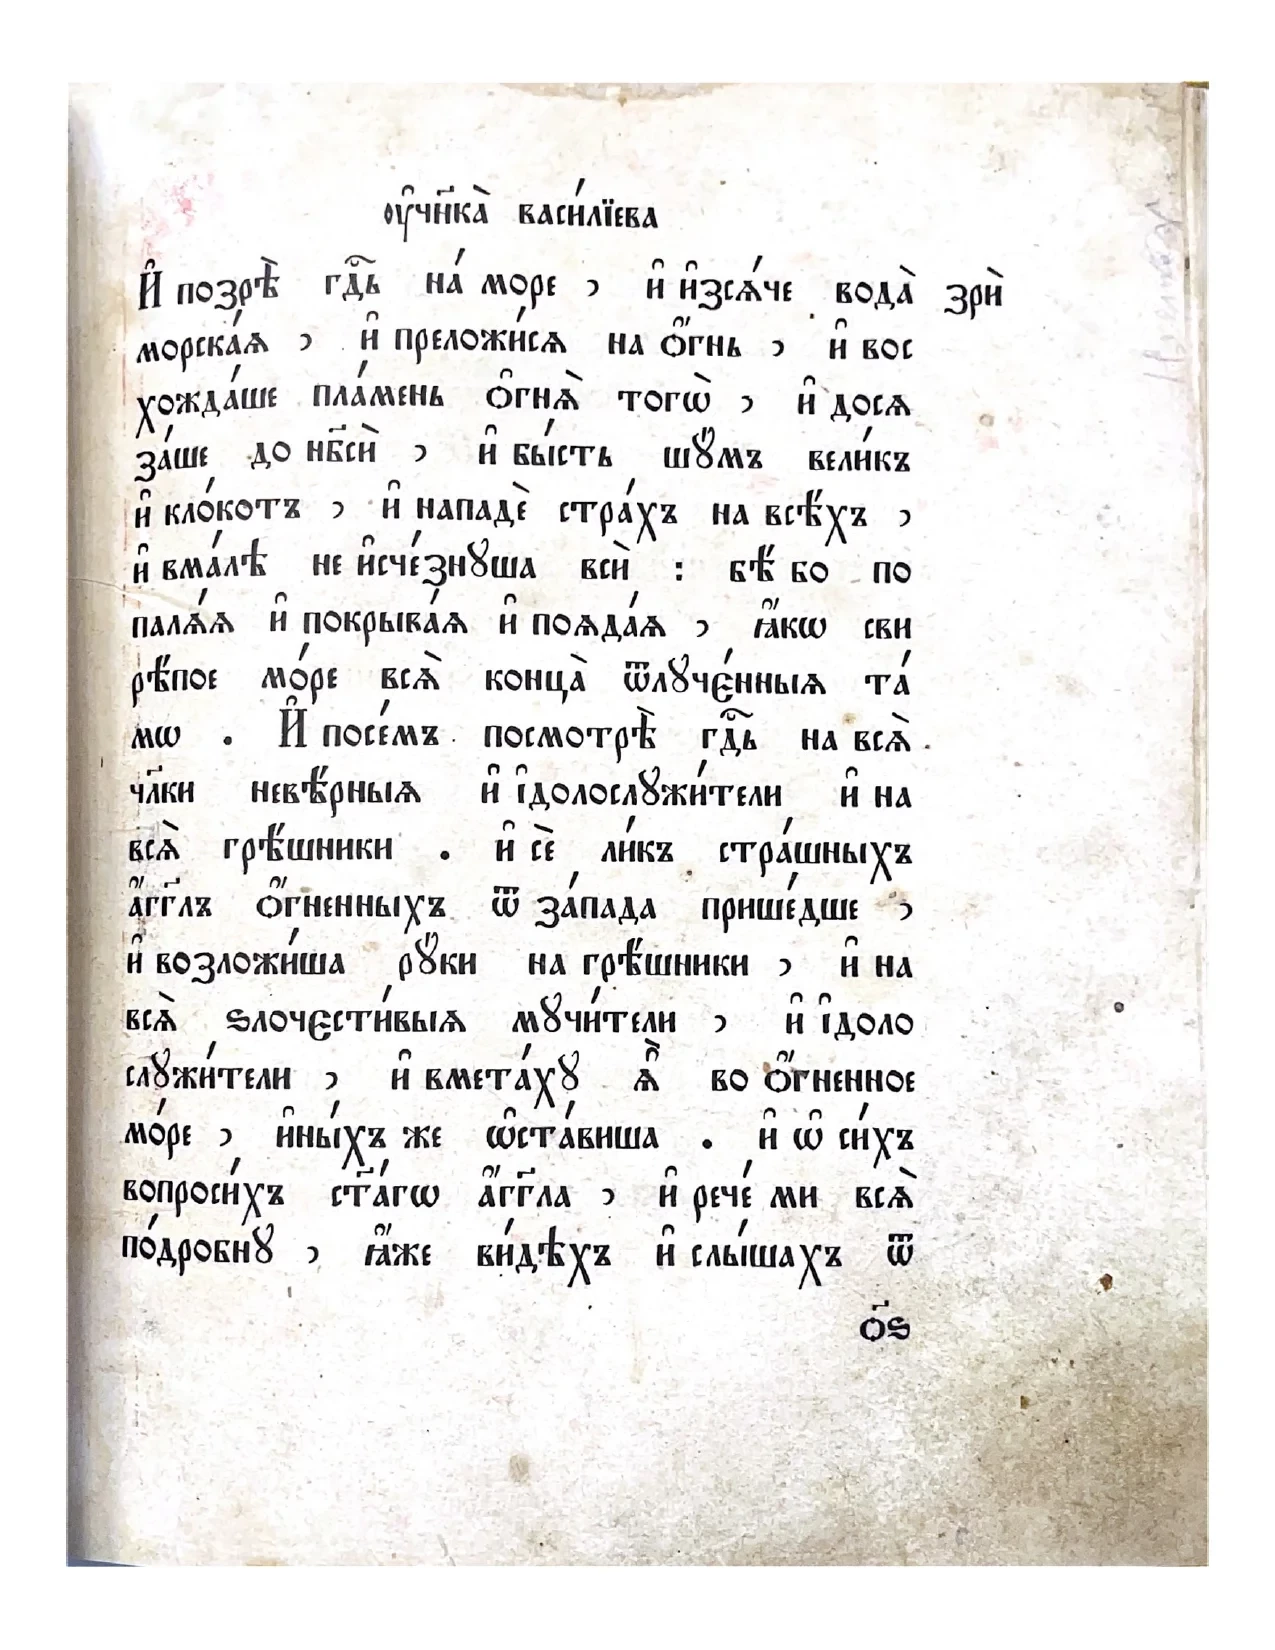 ᲂу҆чн҃ка̀ васи́лїева
И҆ позрѣ̀ гдⷭ҇ь на́ море , и҆ и҆зсѧ́че вода̀ зрѝ
морска́ѧ , и҆ преложи́сѧ на ѻ҆́гнь , и҆ вос
хожда́ше пла́мень ѻ҆гнѧ̀ тогѡ̀ , и҆ досѧ
за́ше до нб҃сѝ , и҆ бы́сть шꙋ́мъ вели́къ
и҆ кло́котъ , и҆ нападѐ стра́хъ на всѣ́хъ ,
и҆ вма́лѣ не и҆сче́знꙋша всѝ : бѣ́ бо по
палѧ́ѧ и҆ покрыва́ѧ и҆ поѧда́ѧ , ꙗ҆́кѡ сви
рѣ́пое мо́ре всѧ̀ конца̀ ѿлꙋче́нныѧ та́
мѡ . И҆ посе́мъ посмотрѣ̀ гдⷭ҇ь на всѧ̀
чл҃ки невѣ́рныѧ и҆ і҆долослꙋжи́тели и҆ на
всѧ̀ грѣ́шники . и҆ сѐ ли́къ стра́шныхъ
а҆́гг҃лъ ѻ҆́гненныхъ ѿ за́пада прише́дше ,
и҆ возложи́ша рꙋ́ки на грѣ́шники , и҆ на
всѧ̀ ѕлочести́выѧ мꙋчи́тели , и҆ і҆доло
слꙋжи́тели , и҆ вмета́хꙋ ѧ҆̀ во ѻ҆́гненное
мо́ре , и҆ны́хъ же ѡ҆ста́виша . и҆ ѡ҆ си́хъ
вопроси́хъ ст҃а́гѡ а҆́гг҃ла , и҆ рече́ ми всѧ̀
подро́бнꙋ , ꙗ҆́же ви́дѣхъ и҆ слы́шахъ ѿ
ѻ҃ѕ